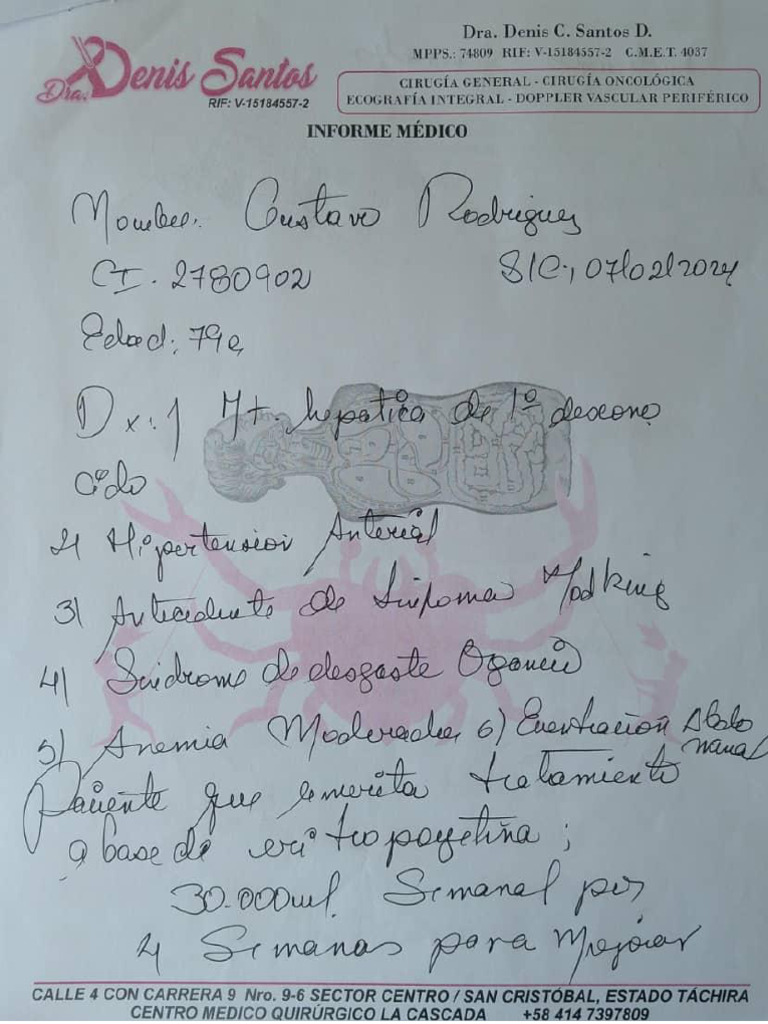 Dra. Denis Santos
RIF: V-15184557-2
Dra. Denis C. Santos D.
MPPS.: 74809 RIF: V-15184557-2 C.M.E.T. 4037
CIRUGÍA GENERAL - CIRUGÍA ONCOLÓGICA
ECOGRAFÍA INTEGRAL - DOPPLER VASCULAR PERIFÉRICO
INFORME MÉDICO
Nombre: Gustavo Rodriguez
CI. 2780902 S/C., 07/02/2024
Edad: 79a
Dx: 1 Mt. hepatica de 1º descono
cido
2) Hipertension Arterial
3) Antecedente de Linfoma Hodking
4) Sindrome de desgaste Organico
5) Anemia Moderada 6) Eventracion Abdo
minal
Paciente que amerita tratamiento
a base de eritropoyetina;
30.000 ui. Semanal por
4 Semanas para Mejorar
CALLE 4 CON CARRERA 9 Nro. 9-6 SECTOR CENTRO / SAN CRISTÓBAL, ESTADO TÁCHIRA
CENTRO MEDICO QUIRÚRGICO LA CASCADA +58 414 7397809